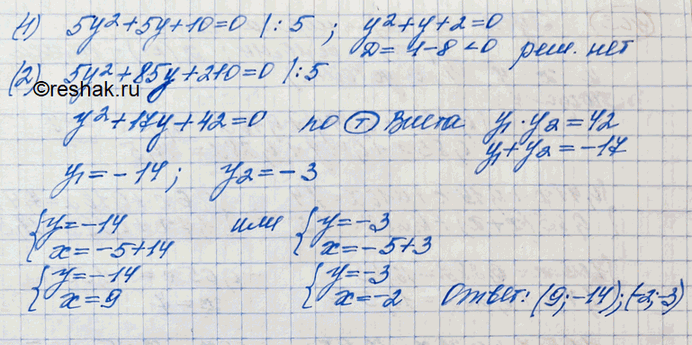 (1) 5y²+5y+10=0 |:5 ; y²+y+2=0
D= 1-8<0 реш. нет
(2) 5y²+85y+210=0 |:5
©reshak.ru
y²+17y+42=0 по (Т) Виета y₁·y₂=42
y₁+y₂=-17
y₁=-14; y₂=-3
{y=-14 или {y=-3
x=-5+14 x=-5+3
{y=-14 {y=-3
x=9 x=-2 Ответ: (9;-14);(-2;-3)